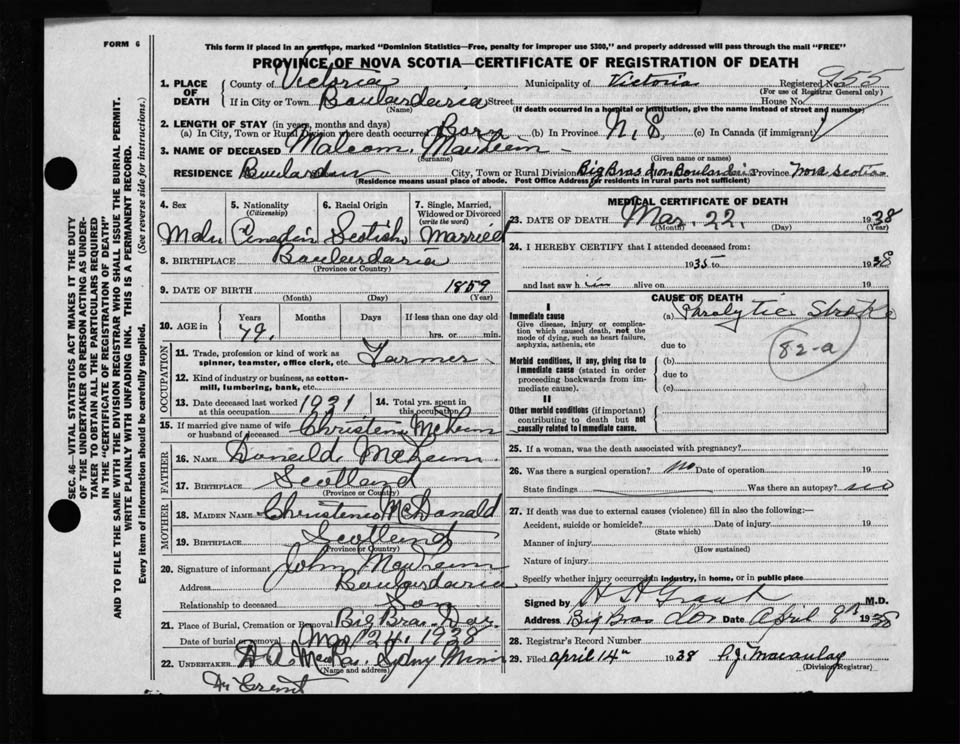 FORM 6
This form if placed in an envelope, marked "Dominion Statistics—Free, penalty for improper use $300," and properly addressed will pass through the mail "FREE"
PROVINCE OF NOVA SCOTIA—CERTIFICATE OF REGISTRATION OF DEATH
1. PLACE OF DEATH County of Victoria Municipality of Victoria Registered No. 955
(For use of Registrar General only)
If in City or Town Boulardaria Street House No.
(Name) (If death occurred in a hospital or institution, give the name instead of street and number)
2. LENGTH OF STAY (in years, months and days)
(a) In City, Town or Rural Division where death occurred Born (b) In Province N.S. (c) In Canada (if immigrant)
3. NAME OF DECEASED Malcom
(Surname) (Given name or names)
RESIDENCE City, Town or Rural Division Big Bras d'or Boulardaria Province Nova Scotia
(Residence means usual place of abode. Post Office Address for residents in rural parts not sufficient)
4. Sex 5. Nationality (Citizenship) 6. Racial Origin 7. Single, Married, Widowed or Divorced (write the word)
Male Canadian Scotish Married
8. BIRTHPLACE Boulardaria
(Province or Country)
9. DATE OF BIRTH 1859
(Month) (Day) (Year)
10. AGE in Years Months Days If less than one day old
79. hrs. or min.
OCCUPATION
11. Trade, profession or kind of work as spinner, teamster, office clerk, etc. Farmer
12. Kind of industry or business, as cotton-mill, lumbering, bank, etc.
13. Date deceased last worked at this occupation 1931 14. Total yrs. spent in this occupation
15. If married give name of wife or husband of deceased
FATHER
16. NAME Donald
17. BIRTHPLACE Scotland
(Province or Country)
MOTHER
18. MAIDEN NAME McDonald
19. BIRTHPLACE Scotland
(Province or Country)
20. Signature of informant John
Address Boulardaria
Relationship to deceased Son
21. Place of Burial, Cremation or Removal Big Bras Dor
Date of burial or removal Mar 24, 1938
22. UNDERTAKER Sydny
(Name and address)
MEDICAL CERTIFICATE OF DEATH
23. DATE OF DEATH Mar. 22. 1938
(Month) (Day) (Year)
24. I HEREBY CERTIFY that I attended deceased from:
1935 to 1938
and last saw him alive on 19
CAUSE OF DEATH
I
Immediate cause (a) Paralytic Stroke
Give disease, injury or complication which caused death, not the mode of dying, such as heart failure, asphyxia, asthenia, etc
due to
82-a
Morbid conditions, if any, giving rise to immediate cause (stated in order proceeding backwards from immediate cause).
(b)
due to
(c)
II
Other morbid conditions (if important) contributing to death but not causally related to immediate cause.
25. If a woman, was the death associated with pregnancy?
26. Was there a surgical operation? no Date of operation 19
State findings Was there an autopsy? no
27. If death was due to external causes (violence) fill in also the following:—
Accident, suicide or homicide? Date of injury 19
(State which)
Manner of injury
(How sustained)
Nature of injury
Specify whether injury occurred in industry, in home, or in public place
Signed by M.D.
Address Big Bras dor Date April 8th 1938
28. Registrar's Record Number
29. Filed April 14th 1938 Macaulay
(Division Registrar)
SEC. 46—VITAL STATISTICS ACT MAKES IT THE DUTY
OF THE UNDERTAKER OR PERSON ACTING AS UNDER-
TAKER TO OBTAIN ALL THE PARTICULARS REQUIRED
IN THE "CERTIFICATE OF REGISTRATION OF DEATH"
AND TO FILE THE SAME WITH THE DIVISION REGISTRAR WHO SHALL ISSUE THE BURIAL PERMIT.
WRITE PLAINLY WITH UNFADING INK. THIS IS A PERMANENT RECORD.
Every item of information should be carefully supplied. (See reverse side for instructions.)